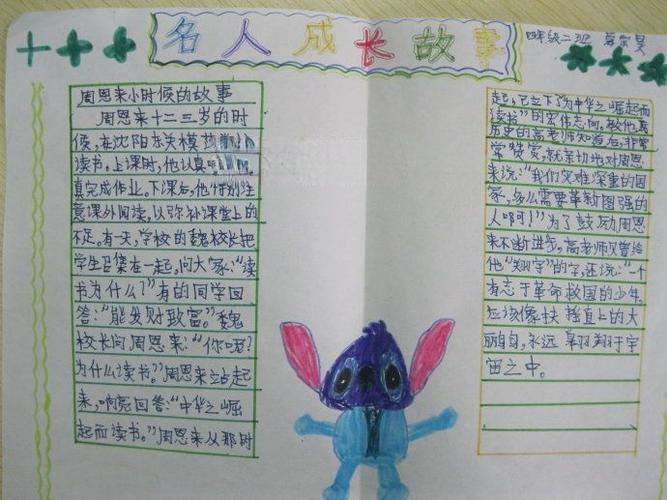 名人成长故事
四年级二班
周恩来小时候的故事
周恩来十二三岁的时
候,在沈阳东关模范
读书。上课时,他认真
真完成作业。下课后,他特别注
意课外阅读,以弥补课堂上的
不足。有一天,学校的魏校长把
学生召集在一起,问大家:“读
书为什么?”有的同学回
答:“能发财致富。”魏
校长问周恩来:“你呢?
为什么读书。”周恩来站起
来,响亮回答:“中华之崛
起而读书。”周恩来从那时
起,已立下了为中华之崛起而
读书”的宏伟志向。教他
历史的高老师知道后,非常
常赞赏,就亲切地对周恩
来说:“我们灾难深重的国
家,多么需要革新图强的
人啊!”为了鼓励周恩
来不断进步,高老师见曾给
他“翔宇”的字,还说:“一个
有志于革命救国的少年,
应该像扶摇直上的大
鹏鸟,永远翱翔于宇
宙之中。